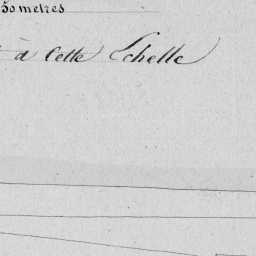 50 metres
à Cette Echelle